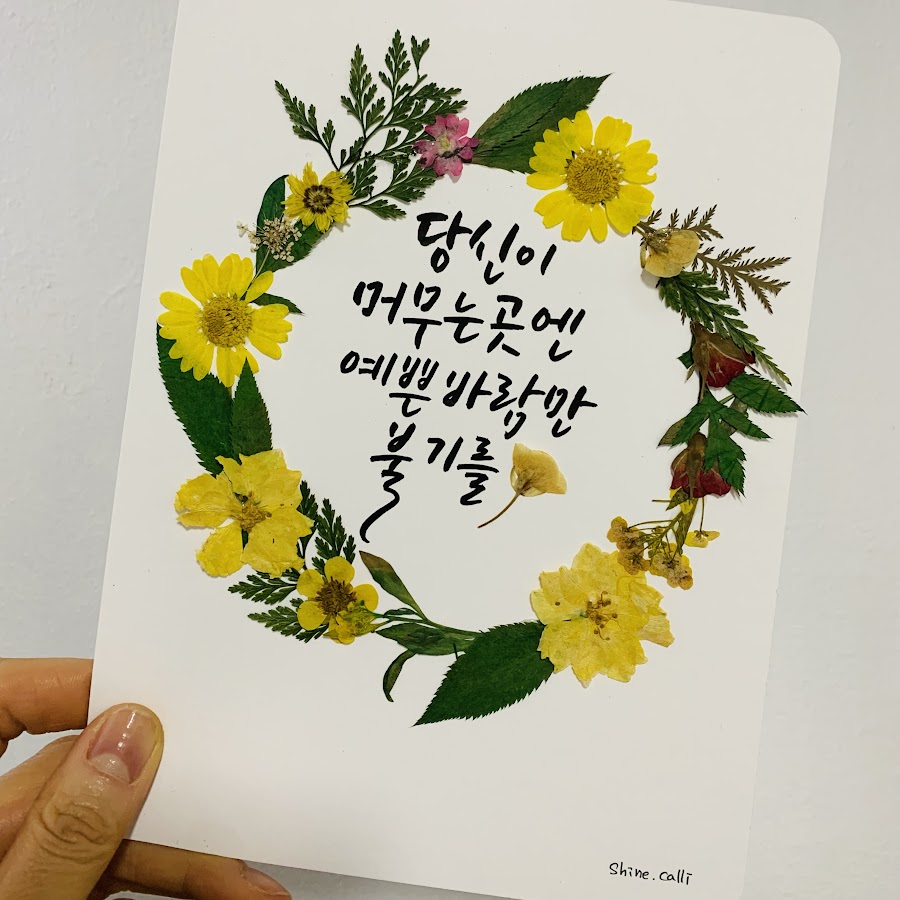 당신이
머무는 곳엔
예쁜 바람만
불기를
Shine.calli